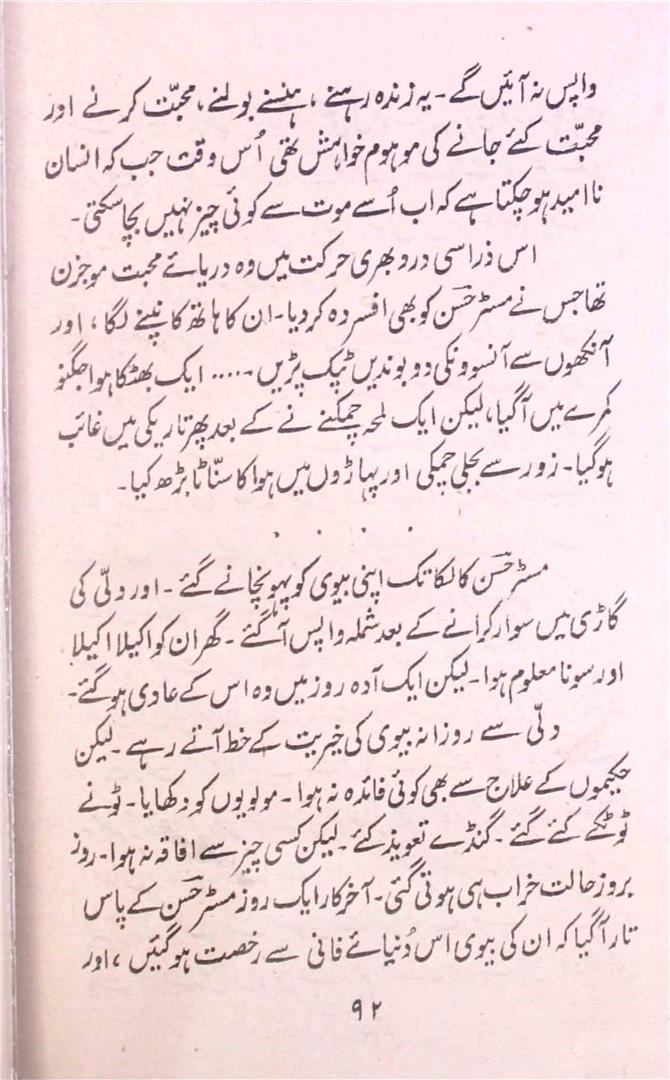 واپس نہ آئیں گے ۔ یہ زندہ رہنے ، ہنسنے بولنے ، محبّت کرنے اور
محبّت کئے جانے کی موہوم خواہش تھی اُس وقت جب کہ انسان
نا امید ہو چکتا ہے کہ اب اُسے موت سے کوئی چیز نہیں بچا سکتی ۔
اس ذرا سی درد بھری حرکت میں وہ دریائے محبت موجزن
تھا جس نے مسٹر حسن کو بھی افسردہ کر دیا ۔ ان کا ہاتھ کانپنے لگا ، اور
آنکھوں سے آنسوونکی دو بوندیں ٹپک پڑیں ..... ایک بھٹکا ہوا جگنو
کمرے میں آ گیا ، لیکن ایک لمحہ چمکنے نے کے بعد پھر تاریکی میں غائب
ہو گیا ۔ زور سے بجلی چمکی اور پہاڑوں میں ہوا کا سنّاٹا بڑھ گیا ۔
. . . .
مسٹر حسن کالکا تک اپنی بیوی کو پہونچانے گئے ۔ اور دلّی کی
گاڑی میں سوار کرانے کے بعد شملہ واپس آ گئے ۔ گھر ان کو اکیلا اکیلا
اور سونا معلوم ہوا ۔ لیکن ایک آدہ روز میں وہ اس کے عادی ہو گئے ۔
دلّی سے روزانہ بیوی کی خیریت کے خط آتے رہے ۔ لیکن
حکیموں کے علاج سے بھی کوئی فائدہ نہ ہوا ۔ مولویوں کو دکھایا ۔ ٹونے
ٹوٹکے کئے گئے ۔ گنڈے تعویذ کئے ۔ لیکن کسی چیز سے افاقہ نہ ہوا ۔ روز
بروز حالت خراب ہی ہوتی گئی ۔ آخر کار ایک روز مسٹر حسن کے پاس
تار آ گیا کہ ان کی بیوی اس دُنیائے فانی سے رخصت ہو گئیں ، اور
۹۲